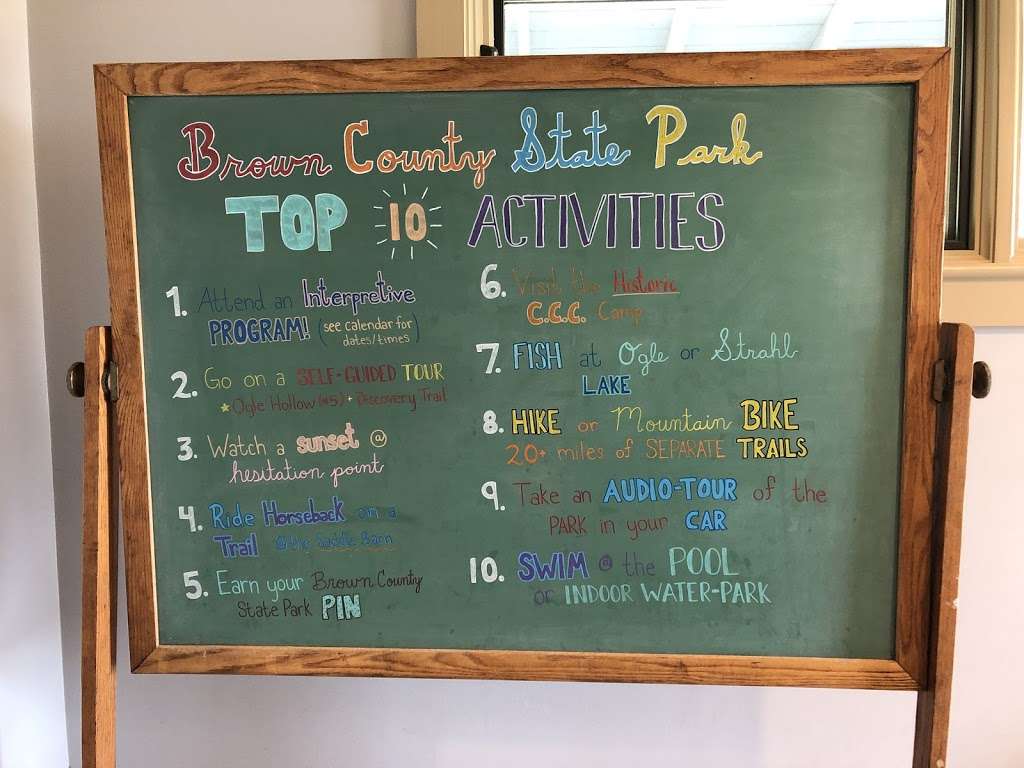 Brown County State Park
TOP 10 ACTIVITIES
1. Attend an Interpretive
PROGRAM! (see calendar for
dates/times)
2. Go on a SELF-GUIDED TOUR
★ Ogle Hollow (#5) + Discovery Trail
3. Watch a sunset @
hesitation point
4. Ride Horseback on a
Trail @ the Saddle Barn
5. Earn your Brown County
State Park PIN
6. Visit the Historic
C.C.C. Camp
7. FISH at Ogle or Strahl
LAKE
8. HIKE or Mountain BIKE
20+ miles of SEPARATE TRAILS
9. Take an AUDIO-TOUR of the
PARK in your CAR
10. SWIM @ the POOL
or INDOOR WATER-PARK